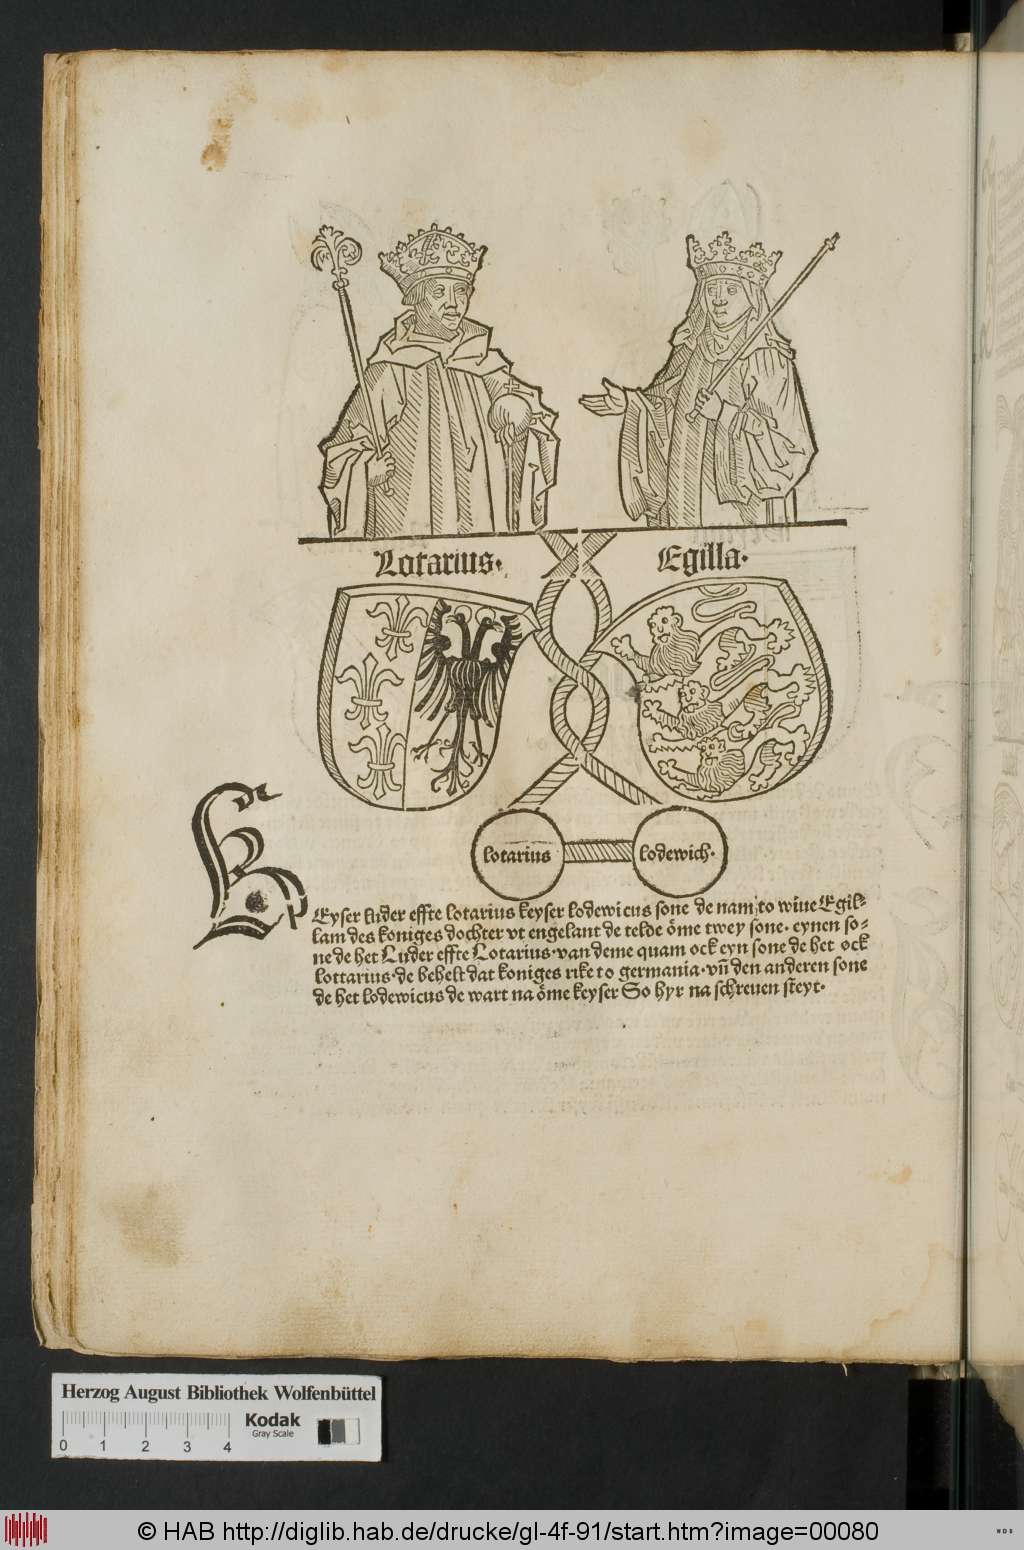 Lotarius·
Egilla·
lotarius
lodewich·
KEyser luder effte lotarius keyser lodewicus sone de nam to wiue Egil⸗
lam des koniges dochter vt engelant de telde ome twey sone· eynen so⸗
ne de het Luder effte Lotarius· van deme quam ock eyn sone de het ock
lottarius· de behelt dat koniges rike to germania· vn̄ den anderen sone
de het lodewicus de wart na ome keyser So hyr na schreuen steyt·
Herzog August Bibliothek Wolfenbüttel
Kodak
Gray Scale
0 1 2 3 4
© HAB http://diglib.hab.de/drucke/gl-4f-91/start.htm?image=00080